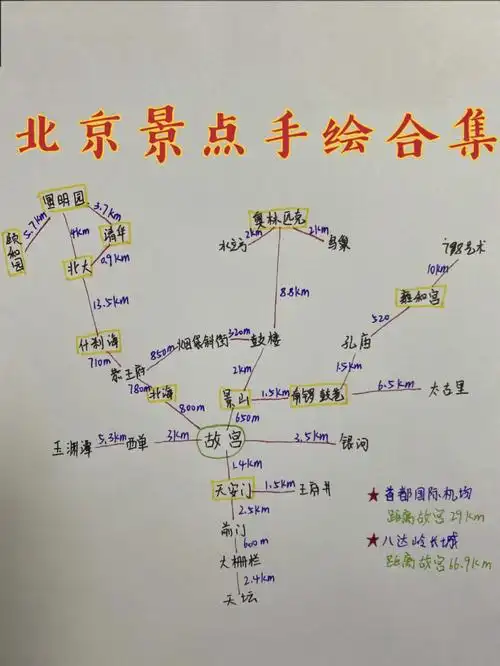 北京景点手绘合集
圆明园
5.7km
颐和园
4km
3.7km
清华
北大
0.9km
13.5km
什刹海
710m
恭王府
850m
烟袋斜街
320m
鼓楼
780m
北海
800m
奥林匹克
2km
水立方
2km
鸟巢
8.8km
2km
景山
650m
1.5km
南锣鼓巷
1.5km
孔庙
520
雍和宫
10km
798艺术
6.5km
太古里
玉渊潭
5.3km
西单
3km
故宫
3.5km
银河
1.4km
天安门
1.5km
王府井
2.5km
前门
600m
大栅栏
2.4km
天坛
★首都国际机场
距离故宫29km
★八达岭长城
距离故宫66.9km